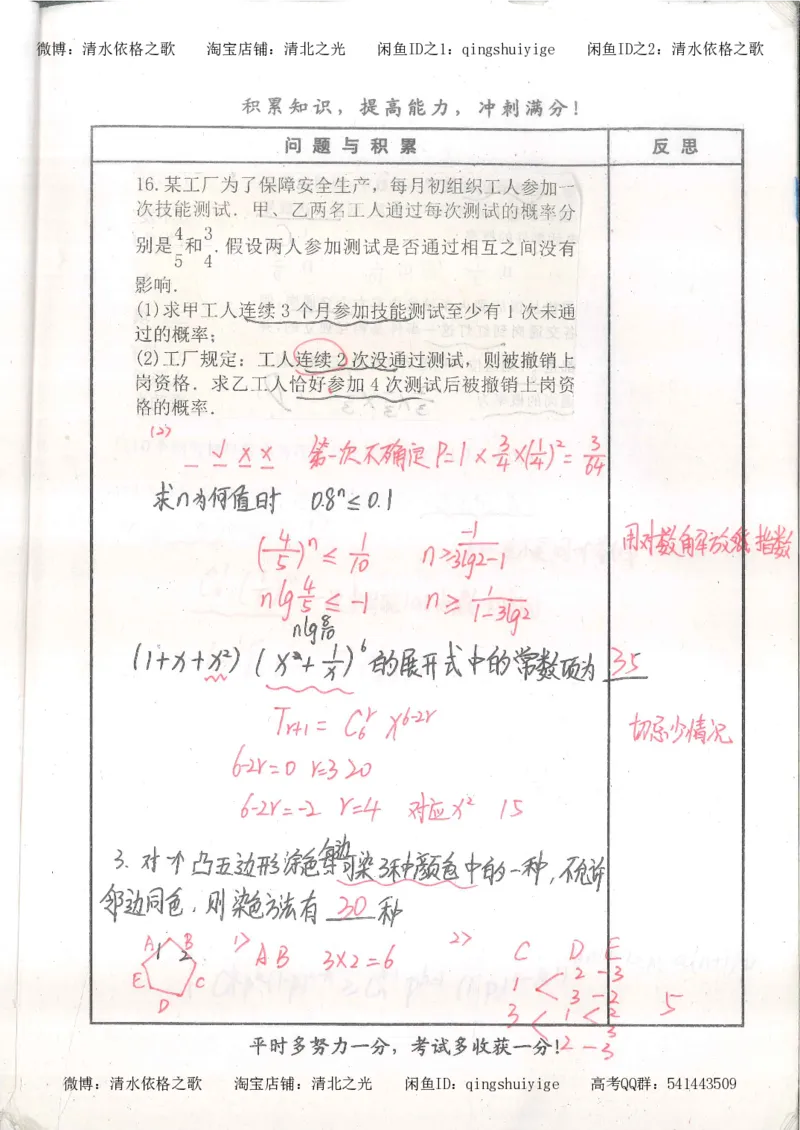 微博：清水依格之歌 淘宝店铺：清北之光 闲鱼ID之1：qingshuiyige 闲鱼ID之2：清水依格之歌
积累知识，提高能力，冲刺满分！
问题与积累 反思
16.某工厂为了保障安全生产，每月初组织工人参加一
次技能测试．甲、乙两名工人通过每次测试的概率分
别是4/5和3/4．假设两人参加测试是否通过相互之间没有
影响．
(1)求甲工人连续3个月参加技能测试至少有1次未通
过的概率；
(2)工厂规定：工人连续2次没通过测试，则被撤销上
岗资格．求乙工人恰好参加4次测试后被撤销上岗资
格的概率．
(2)
_ √ × × 第一次不确定 P=1×3/4×(1/4)²=3/64
求n为何值时 0.8ⁿ≤0.1
(4/5)ⁿ≤1/10 n≥-1/(3lg2-1) 用对数解放指数
nlg4/5≤-1 n≥1/(1-3lg2)
nlg8/10
(1+x+x²)(x+1/x)⁶的展开式中的常数项为 35
Tr+1=C₆ʳ x⁶⁻²ʳ 切忌少情况
6-2r=0 r=3 20
6-2r=-2 r=4 对应x² 15
3. 对个凸五边形涂色每边可染3种颜色中的一种，不允许
邻边同色，则染色方法有 30 种
A 1 B 2 C D E
1> AB 3×2=6
2> C D E
1 < 2 - 3
3 - 2 5
3 < 1 < 2
3
2 - 3
平时多努力一分，考试多收获一分！
微博：清水依格之歌 淘宝店铺：清北之光 闲鱼ID：qingshuiyige 高考QQ群：541443509